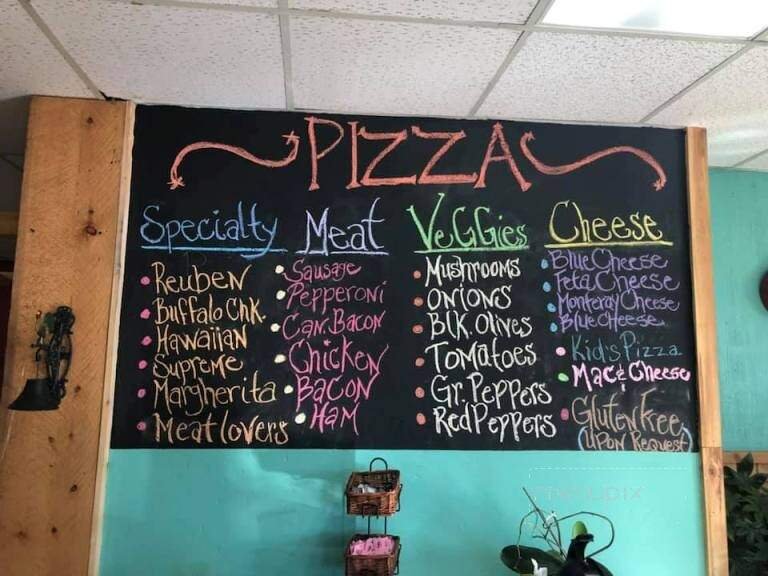 PIZZA
Specialty
Reuben
Buffalo Chk.
Hawaiian
Supreme
Margherita
Meat lovers
Meat
Sausage
Pepperoni
Can. Bacon
Chicken
Bacon
Ham
VeGGies
Mushrooms
Onions
Blk. Olives
Tomatoes
Gr. Peppers
Red Peppers
Cheese
Blue Cheese
Feta Cheese
Monteray Cheese
Blue Cheese
Kid's Pizza
Mac & Cheese
Gluten Free
(Upon Request)